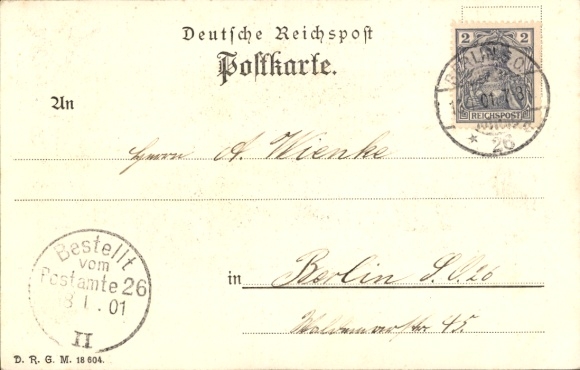 Deutsche Reichspost
Postkarte.
2 2
REICHSPOST
BERLIN S.O.
01
* 26
An
Herrn A. Wienke
Bestellt
vom
Postamte 26
1.01
II
in Berlin S.O. 26
Waldemarstr 45.
D. R. G. M. 18 604.